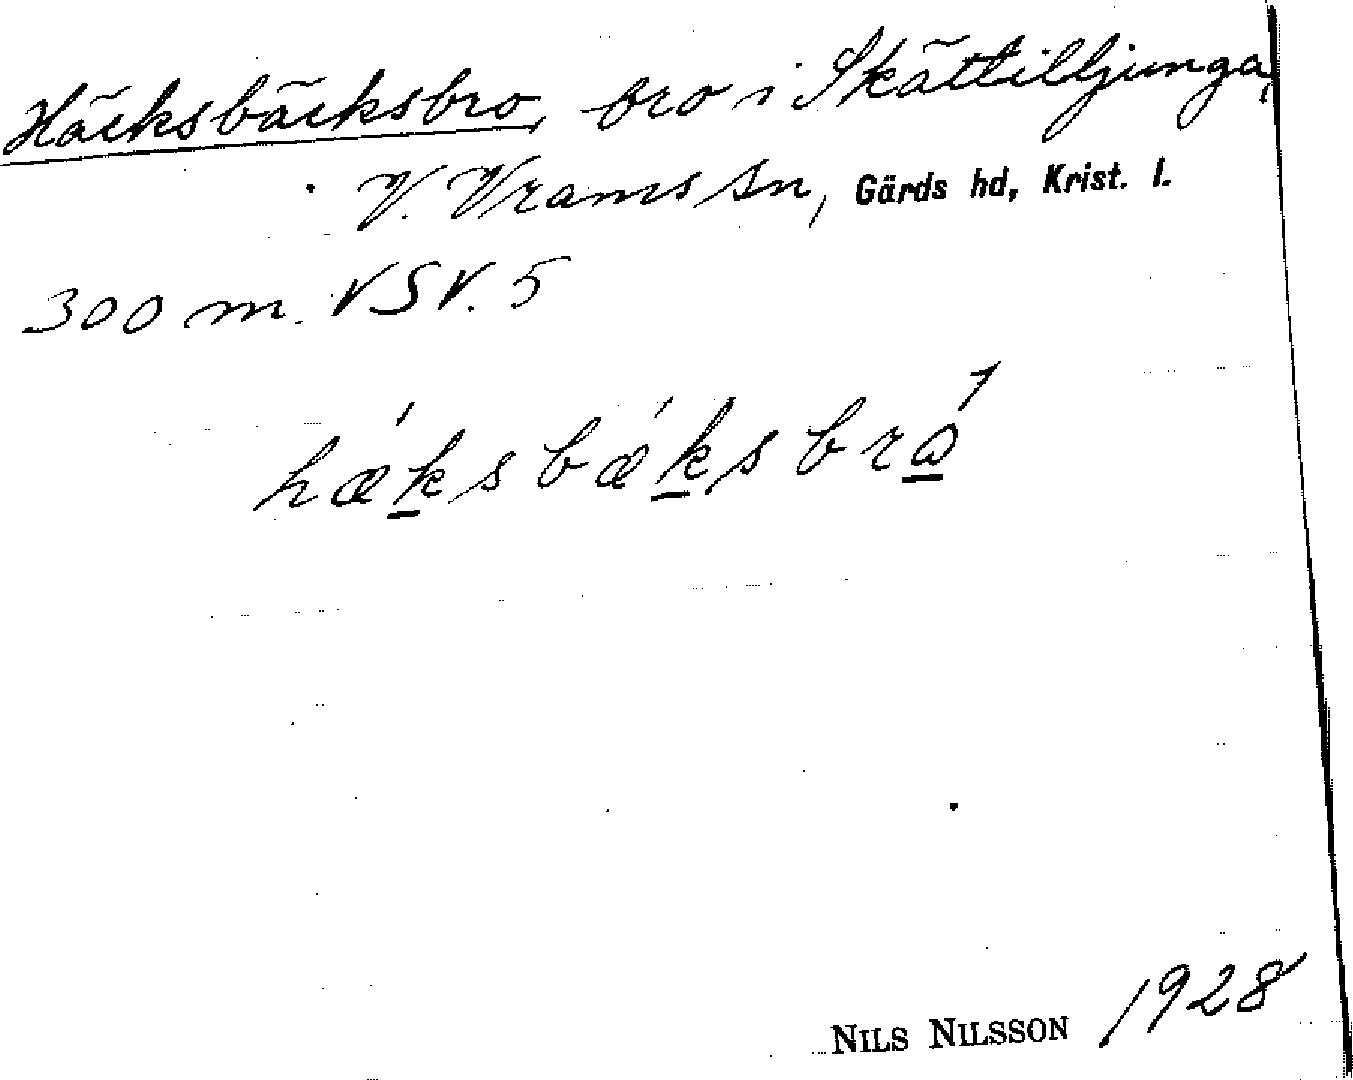 Häcksbäcksbro, bro i Skättilljunga,
V. Vrams sn, Gärds hd, Krist. l.
300 m. VSV. 5
hǽksbǽksbrå̀
NILS NILSSON 1928